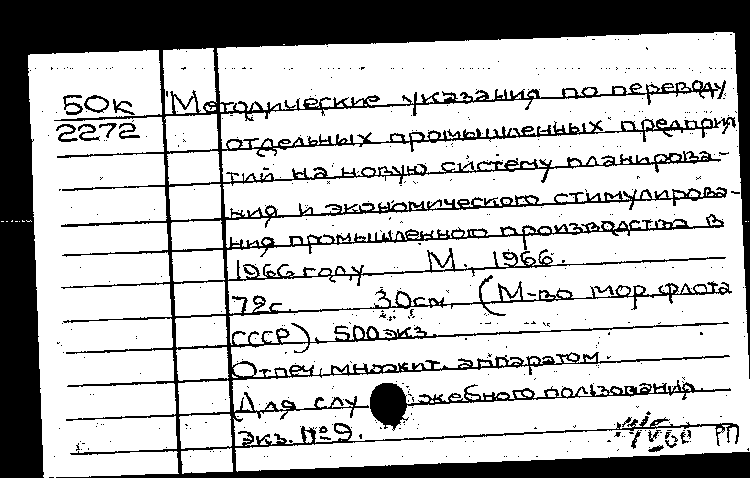 50к
2272
"Методические указания по переводу
отдельных промышленных предприя
тий на новую систему планирова-
ния и экономического стимулирова-
ния промышленного производства в
1966 году. М., 1966.
72с. 30см. (М-во мор. флота
СССР). 500 экз.
Отпеч. множит. аппаратом.
Для служебного пользования.
Экз. №9.
РП